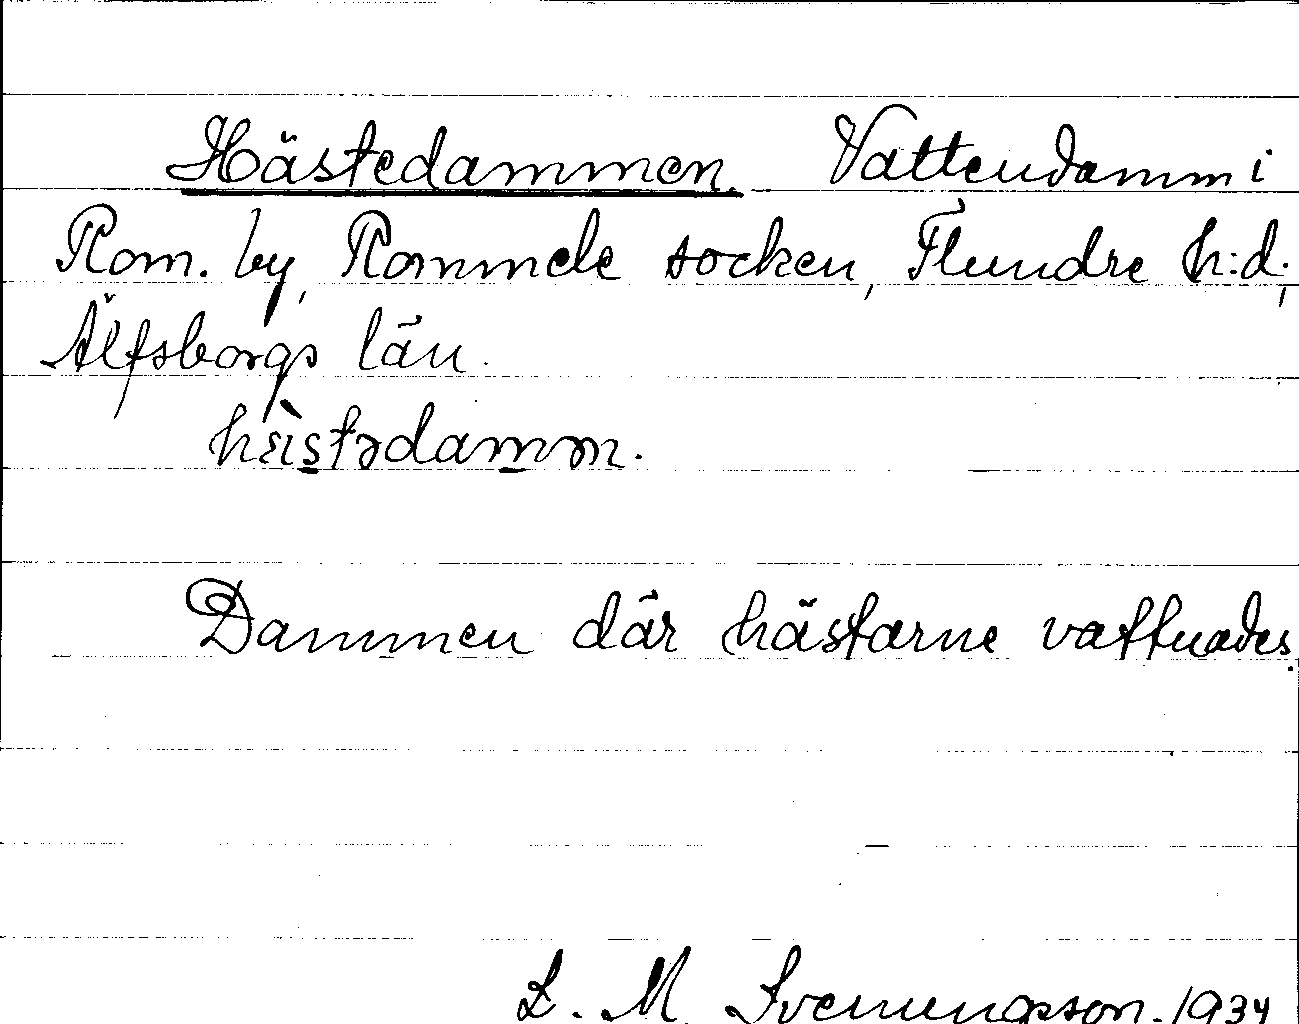 Hästedammen. Vattendamm i
Rom. by, Rommele socken, Flundre h:d.,
Älfsborgs län.
Dammen där hästarne vattnades.
L. M. Svenungsson. 1934